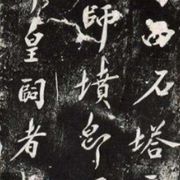 西石塔
師墳
皇闕者